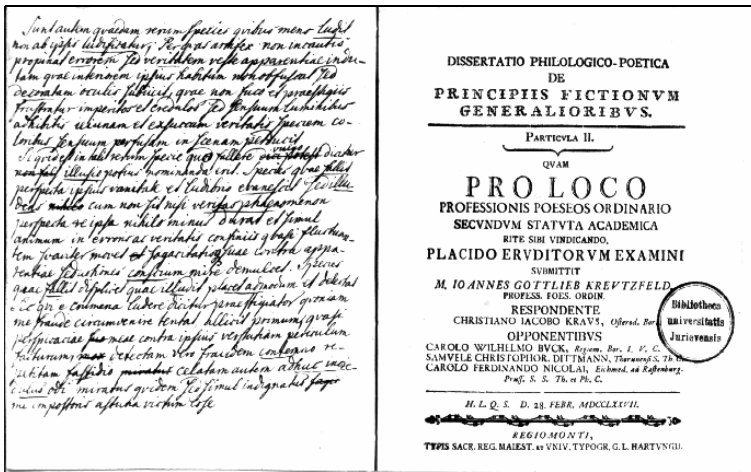 Sunt autem quaedam rerum species quibus mens ludit
non ab ipsis ludificatur. Per quas artifex non incautis
propinat errorem sed veritatem veste apparentiae indu-
tam quae interiorem ipsius habitum non obfuscat sed
decoratam oculis subiicit, quae non fuco et praestigiis
frustratur imperitos et credulos sed sensuum luminibus
adhibitis ieiunam et exsuccam veritatis speciem co-
loribus sensuum perfusam in scenam producit
Si quid est in tali rerum specie quod fallere vulgo dicitur
illusio potius nominanda erit. Species quae fallit
perspecta ipsius vanitate et ludibrio evanescit sed illu-
dens cum non sit nisi veritas phaenomenon
perspecta re ipsa nihilo minus durat et simul
animum in erroris ac veritatis confiniis quasi fluctuan-
tem suaviter movet et sagacitatis suae contra appa-
rentiae seductiones conscium mire demulcet. Species
quae fallit displicet quae illudit placet admodum et delectat
Sic qui e crumena ludere dicitur praestigiator quoniam
me fraude circumvenire tentat allicit primum, quasi
perspicaciae meae contra ipsius versutiam periculum
facturum detectam vero fraudem contemno re-
petitam fastidio celatam autem adhuc
odi miratus quidem sed simul indignatus
me impostoris astutia victum esse
DISSERTATIO PHILOLOGICO-POETICA
DE
PRINCIPIIS FICTIONVM
GENERALIORIBVS.
PARTICVLA II.
QVAM
PRO LOCO
PROFESSIONIS POESEOS ORDINARIO
SECVNDVM STATVTA ACADEMICA
RITE SIBI VINDICANDO,
PLACIDO ERVDITORVM EXAMINI
SVBMITTIT
M. IOANNES GOTTLIEB KREVTZFELD,
PROFESS. POES. ORDIN.
RESPONDENTE
CHRISTIANO IACOBO KRAVS, Osterod. Bor.
OPPONENTIBVS
CAROLO WILHELMO BVCK, Regiom. Bor. I. V. C.
SAMVELE CHRISTOPHOR. DITTMANN, Tharunens S. Th. C.
CAROLO FERDINANDO NICOLAI, Eichmed. ad Rastenburg.
Pruss. S. S. Th. et Ph. C.
Bibliotheca
universitatis
Jurievensis
H. L. Q. S. D. 28. FEBR. MDCCLXXVII.
REGIOMONTI,
TYPIS SACR. REG. MAIEST. ET VNIV. TYPOGR. G. L. HARTVNGII.